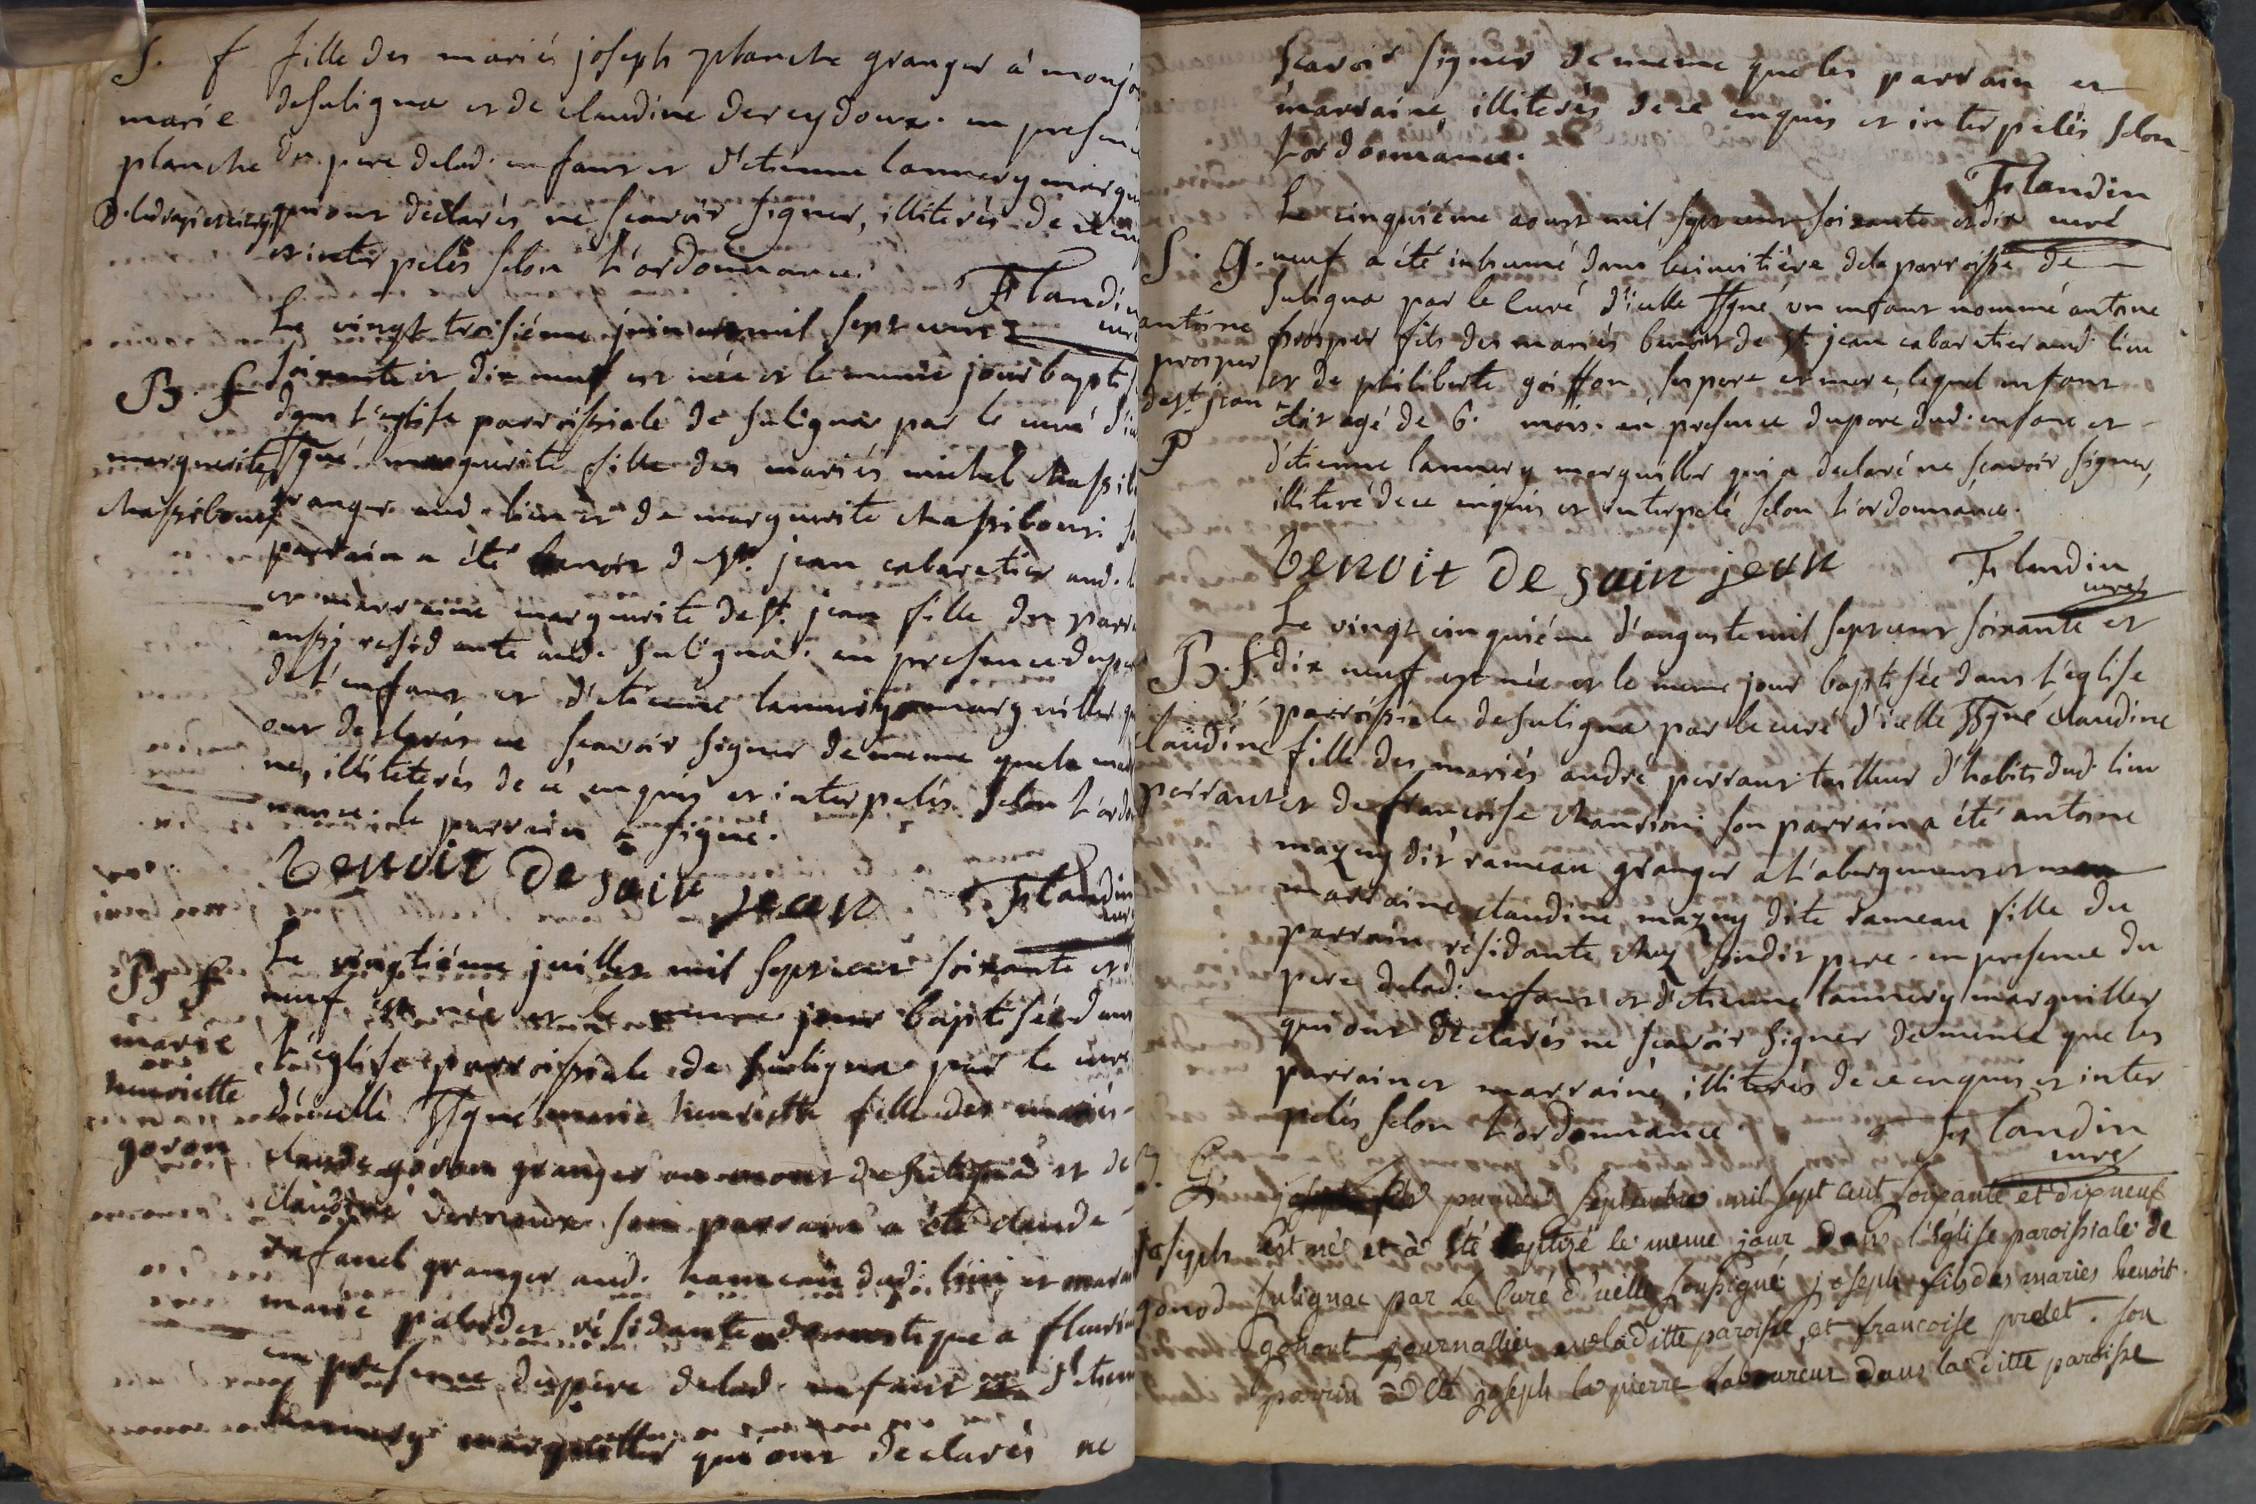 S. f
marie
planche
fille des mariés joseph planche granger à monjo
desuligna et de claudine dereydoux. en presen
du pere delad. enfant et d'etienne lannery margu
qui ont declarés ne scavoir signer, illiterés de ce en
et interpelés selon l'ordonnance.
Flandin
curé
B. f
marguerite
chassibout
Le vingt troisiéme juin mil sept cent
soixante et dix neuf est née et le meme jour bapti
dans l'eglise parroissiale de suligna par le curé d'i
ssgné marguerite fille des mariés michel chassib
granger aud. lieu et de marguerite chassibout. s
parrain a été benoit de st. jean cabaretier aud. l
et marraine marguerite de st. jean fille du parr
aussi residante aud. suligna. en presence du pe
de l'enfant et d'etienne lannery marguiller q
ont declarés ne scavoir signer dememe que la mar
ne, illiterés de ce enquis et interpelés selon l'ordo
nance. le parrain a signé.
benoit de sain jean
Flandin
curé
B f
marie
henriette
goron
Le vingtiéme juillet mil sept cent soixante et d
neuf est née et le meme jour baptisée dans
l'eglise parroissiale de suligna par le curé
d'icelle ssgné marie henriette fille des mariés
claude goron granger au mont de suligna et de
claudine vernoux son parrain a été claude
granger aud. hameau dud. lieu et marai
marie residante domestique a fleuri
en presence du pere delad. enfant et d'etien
lannery marguiller qui ont declarés ne
scavoir signer dememe que les parrain et
marraine, illiterés de ce enquis et interpelés selon
l'ordonnance.
Flandin
curé
S. G.
antoine
prosper
de st. jean
P
Le cinquiéme aoust mil sept cent soixante et dix
neuf a été inhumé dans le cimitiére dela parroisse de
Suligna par le Curé d'icelle ssgné, un enfant nommé antoine
prosper fils des mariés benoit de st. jean cabaretier aud. lieu
et de philiberte goiffon, ses pere et mere, lequel enfant
étoit agé de 6. mois. en presence du pere dud. enfant et
d'etienne lannery marguiller qui a declaré ne scavoir signer,
illiteré de ce enquis et interpelé selon l'ordonnance.
benoit de sain jean
Flandin
curé
B. f.
claudine
perraut
Le vingt cinquiéme d'auguste mil sept cent soixante et
dix neuf est née et le meme jour baptisée dans l'église
parroissiale desuligna par le curé d'icelle ssgné claudine
fille des mariés andré perraut tailleur d'habits dud. lieu
et de francoise chanrion son parrain a été antoine
mazuy dit rameau granger a l'abergement et
marraine claudine mazuy dite rameau fille du
parrain résidante chez sondit pere. en presence du
pere delad. enfant et d'etienne lannery marguiller
qui ont declarés ne scavoir signer dememe que les
parrain et marraine, illiterés de ce enquis et inter
pelés selon l'ordonnance.
Flandin
curé
B. G
joseph
gonod
premier septembre mil sept cent soixante et dix neuf
est né et à été baptizé le meme jour dans l'église paroissiale de
sulignac par Le Curé d'icelle soussigné joseph fils des maries benoit
gonont journallier en laditte paroisse, et francoise prolet. son
parrin à été joseph la pierre laboureur dans la ditte paroisse